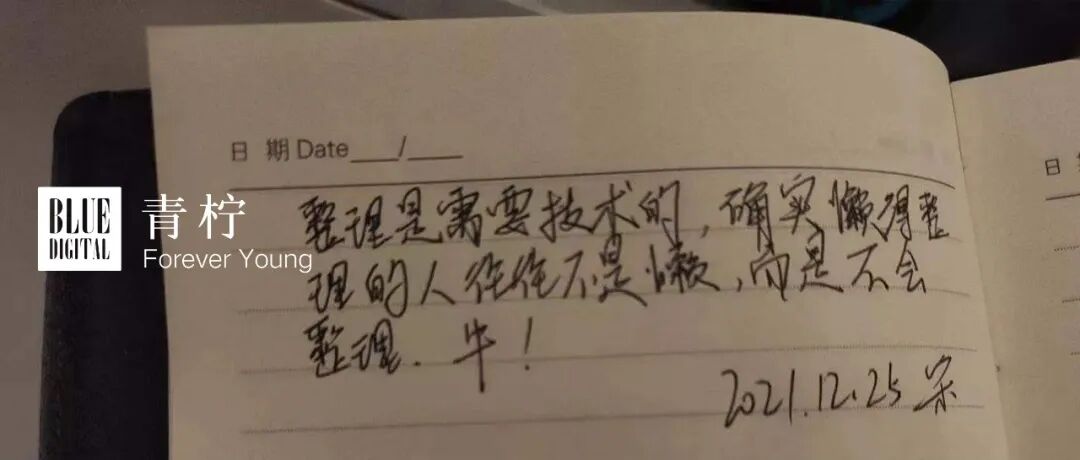 日 期 Date ___/___
日
BLUE
DIGITAL
青柠
Forever Young
整理是需要技术的，确实懒得整
理的人往往不是懒，而是不会
整理．牛！
2021.12.25 宋